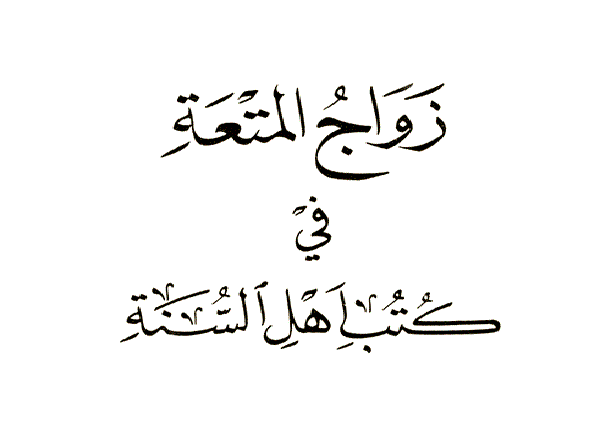 زَوَاجُ المتْعَةِ
في
كُتُبِ أَهْلِ السُّنَّةِ